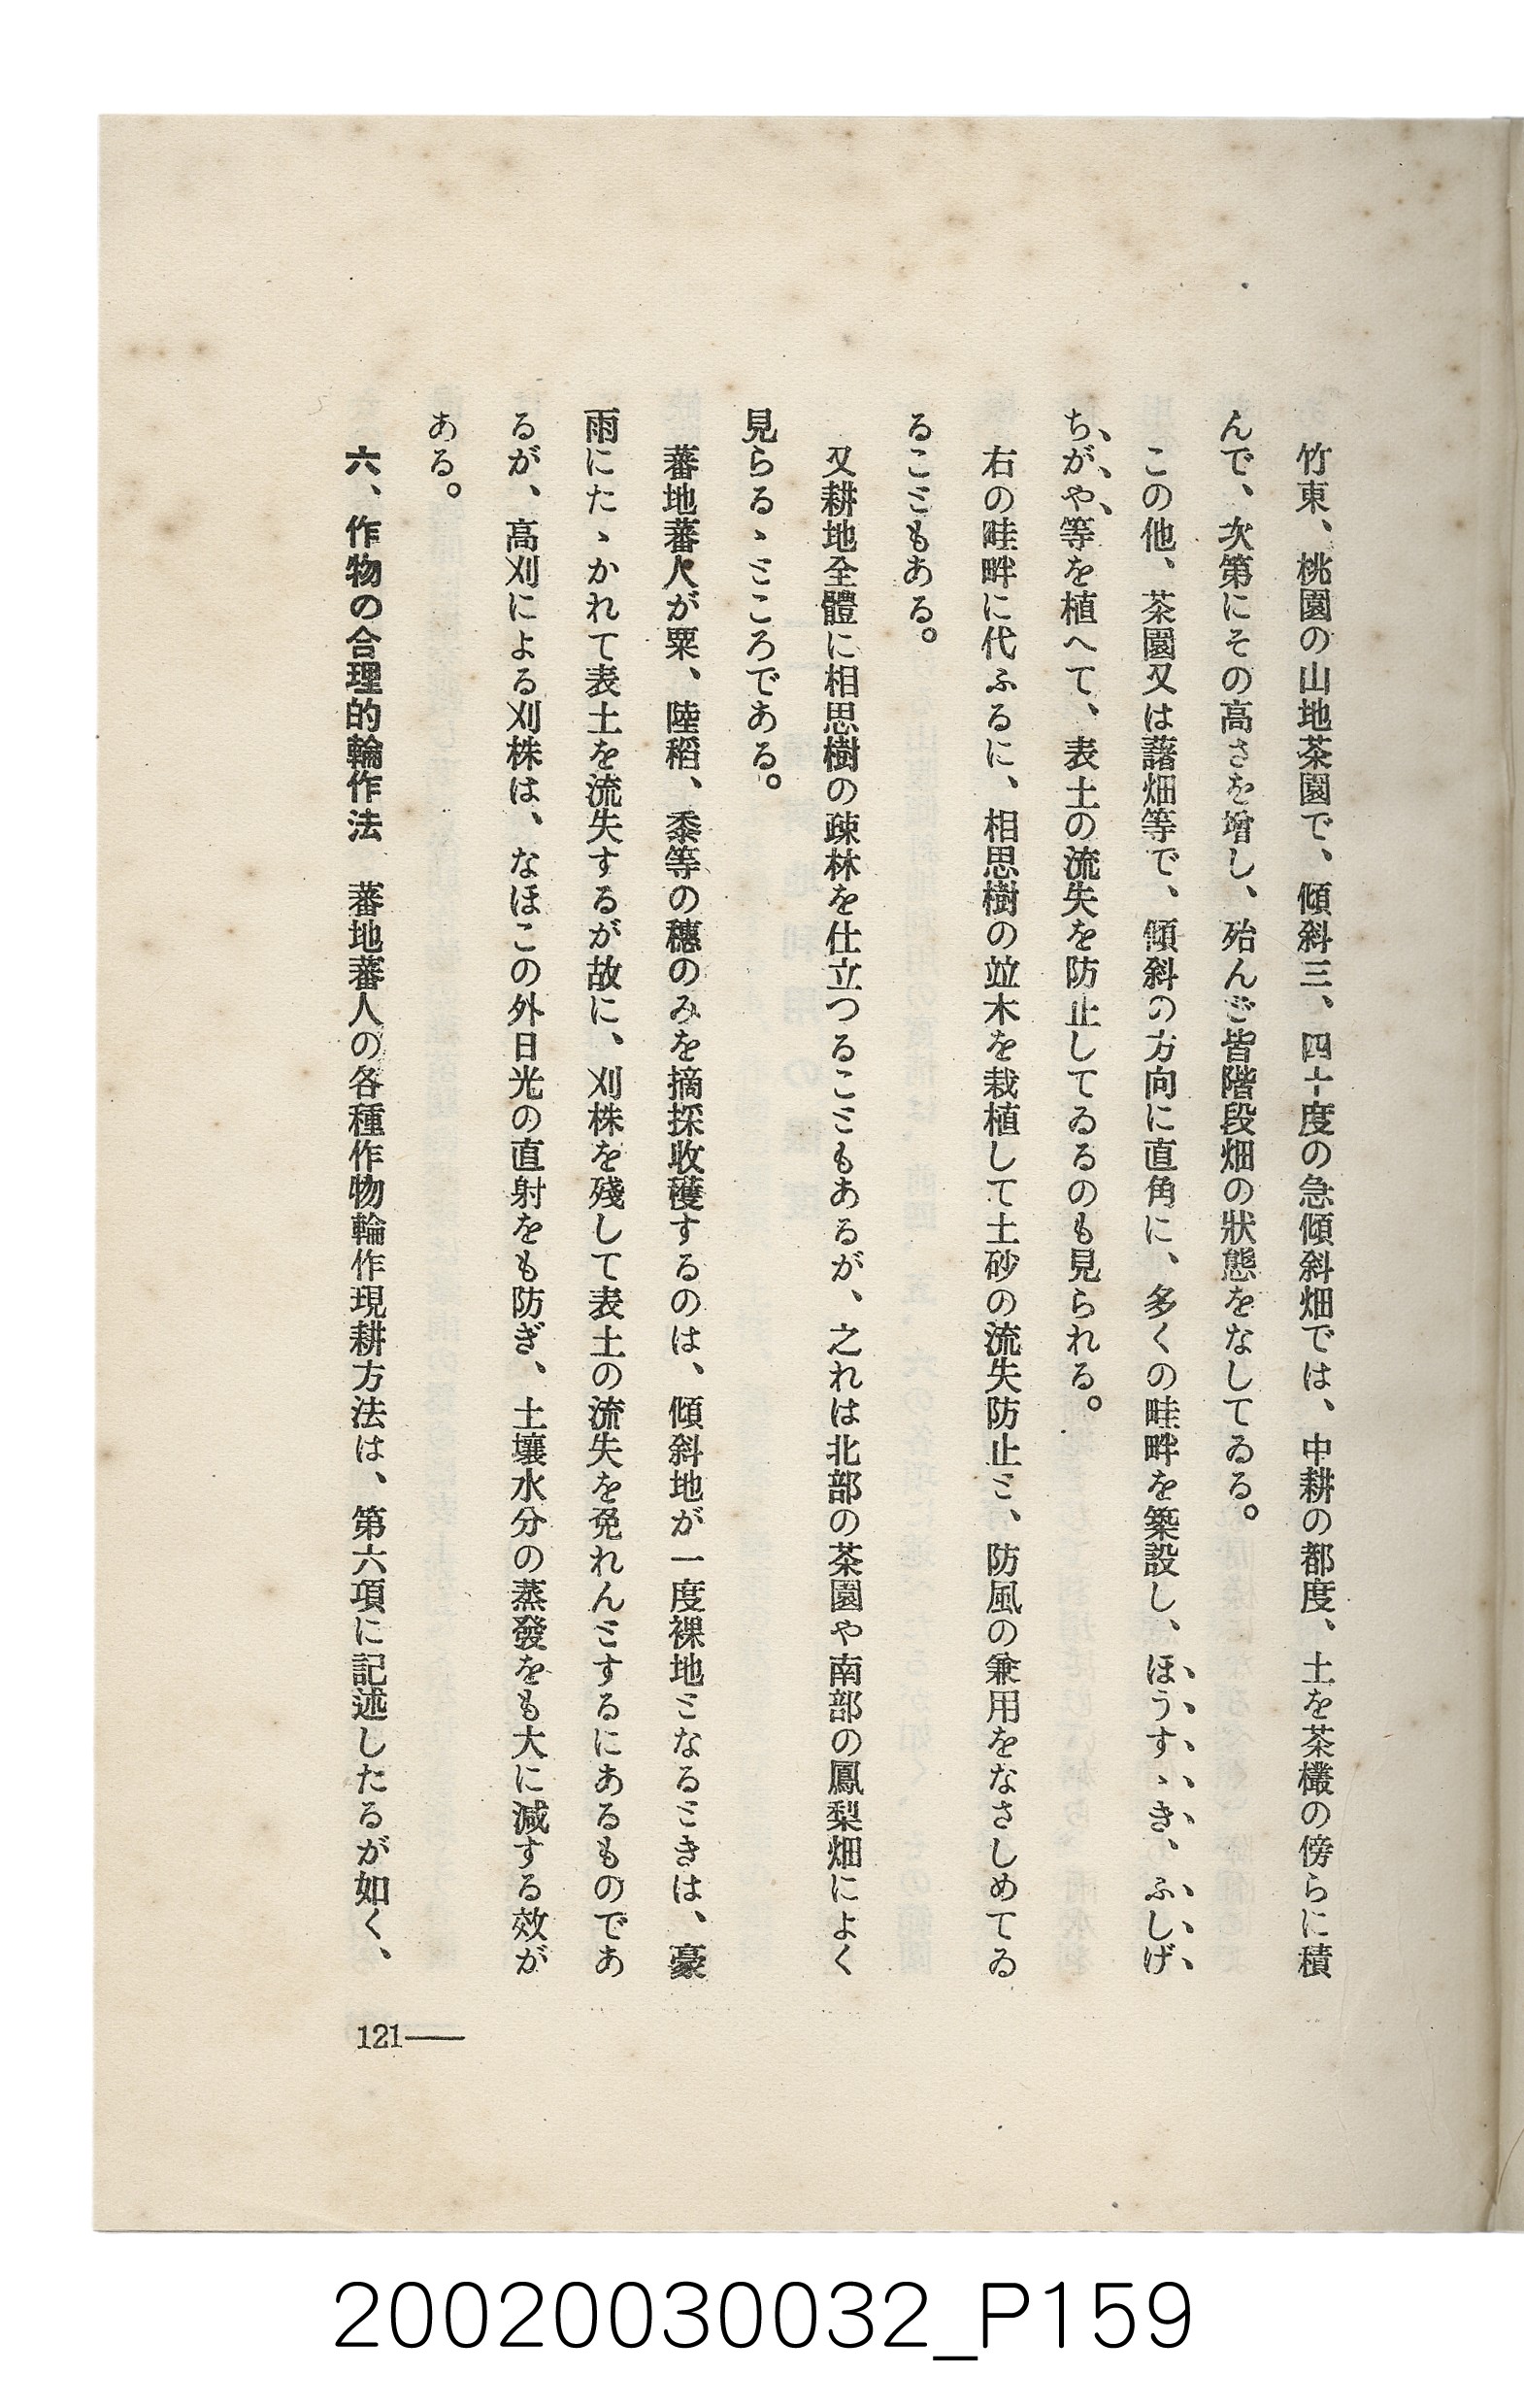 竹東、桃園の山地茶園で、傾斜三、四十度の急傾斜畑では、中耕の都度、土を茶欉の傍らに積
んで、次第にその高さを增し、殆んど皆階段畑の狀態をなしてゐる。
この他、茶園又は藷畑等で、傾斜の方向に直角に、多くの畦畔を築設し、ほうすゝき、ふしげ
ちがや等を植へて、表土の流失を防止してゐるのも見られる。
右の畦畔に代ふるに、相思樹の竝木を栽植して土砂の流失防止と、防風の兼用をなさしめてゐ
ることもある。
又耕地全體に相思樹の疎林を仕立つることもあるが、之れは北部の茶園や南部の鳳梨畑によく
見らるゝところである。
蕃地蕃人が粟、陸稻、黍等の穗のみを摘採收穫するのは、傾斜地が一度裸地となるときは、豪
雨にたゝかれて表土を流失するが故に、刈株を殘して表土の流失を免れんとするにあるものであ
るが、高刈による刈株は、なほこの外日光の直射をも防ぎ、土壤水分の蒸發をも大に減する效が
ある。
六、作物の合理的輪作法　蕃地蕃人の各種作物輪作現耕方法は、第六項に記述したるが如く、
121—
20020030032_P159